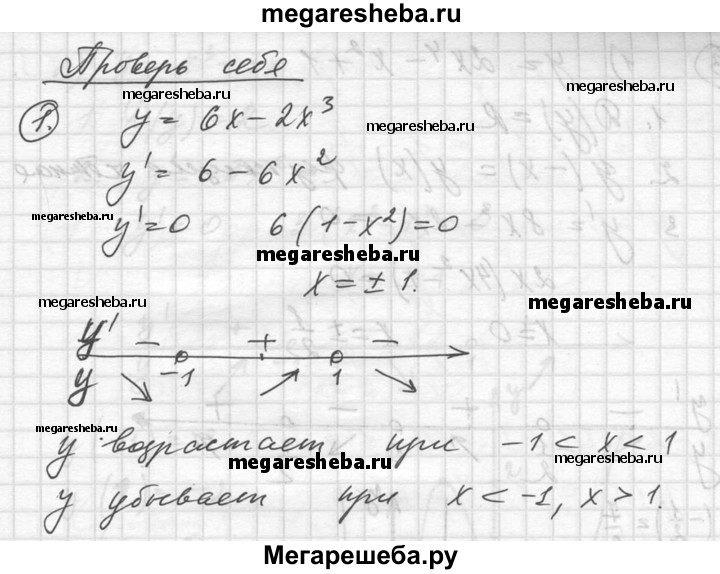 megaresheba.ru
Проверь себя
megaresheba.ru
megaresheba.ru
1. y = 6x - 2x³
megaresheba.ru
y' = 6 - 6x²
megaresheba.ru
y' = 0 6(1 - x²) = 0
megaresheba.ru
x = ± 1.
megaresheba.ru
megaresheba.ru
y' - + -
-1 1
y ↘ ↗ ↘
y возрастает при -1 < x < 1
megaresheba.ru
megaresheba.ru
megaresheba.ru
y убывает при x < -1, x > 1.
Мегарешеба.ру